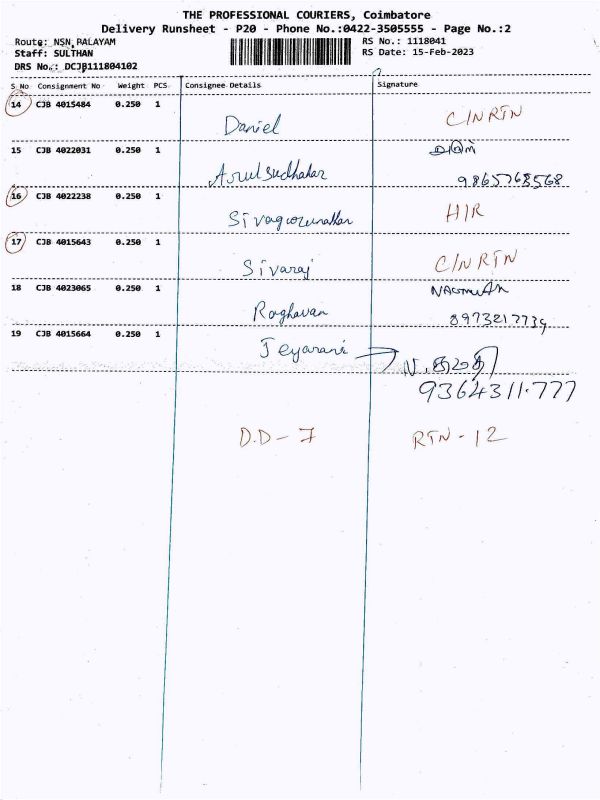 THE PROFESSIONAL COURIERS, Coimbatore
Delivery Runsheet - P20 - Phone No.:0422-3505555 - Page No.:2
Route: NSN PALAYAM
RS No.: 1118041
Staff: SULTHAN
RS Date: 15-Feb-2023
DRS No.: DCJB111804102
S No Consignment No Weight PCS Consignee Details Signature
14 CJB 4015484 0.250 1
Daniel C/N RTN
15 CJB 4022031 0.250 1
Arul Sudhakar 9865768568
16 CJB 4022238 0.250 1
H/R
17 CJB 4015643 0.250 1
Sivaraj C/N RTN
18 CJB 4023065 0.250 1
Raghavan 8973217739
19 CJB 4015664 0.250 1
Jeyarani
9364311.777
D.D - 7 RTN - 12